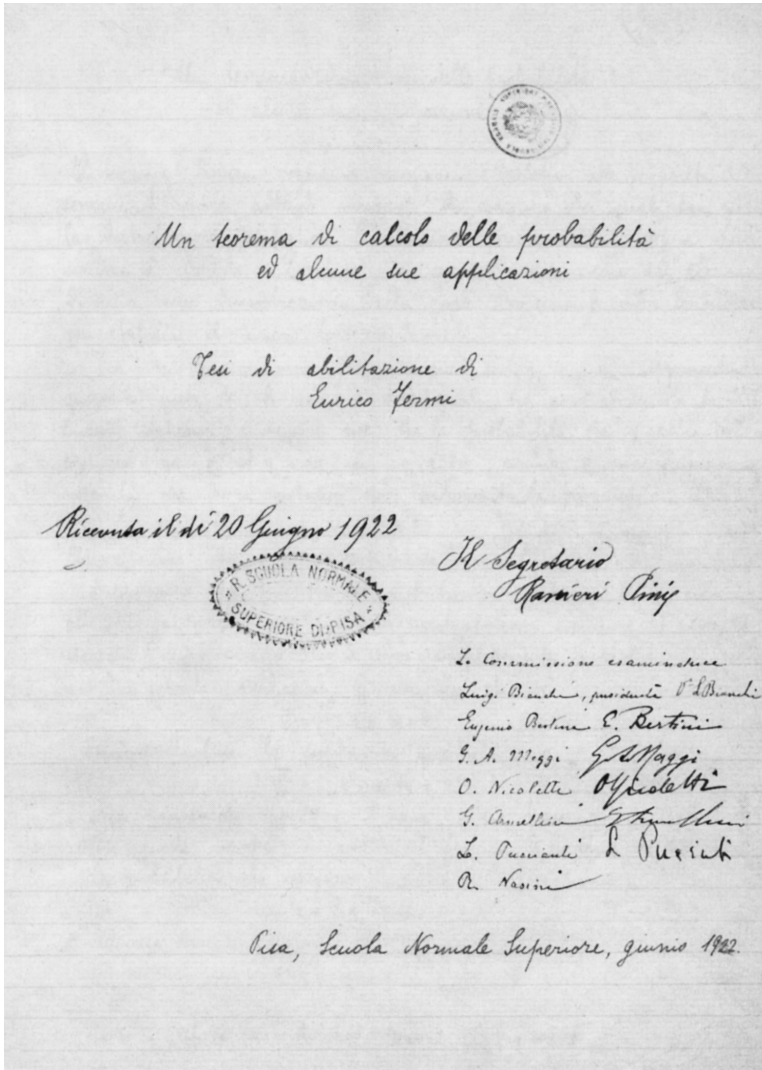 Un teorema di calcolo delle probabilità
ed alcune sue applicazioni
Tesi di abilitazione di
Enrico Fermi
Ricevuta il dì 20 Giugno 1922
R. SCUOLA NORMALE
SUPERIORE DI PISA
Il Segretario
Ranieri Pini
La Commissione esaminatrice
Luigi Bianchi, presidente L Bianchi
Eugenio Bertini E. Bertini
G. A. Maggi G A Maggi
O. Nicoletti O Nicoletti
G. Armellini
L. Puccianti L Puccianti
R. Nasini
Pisa, Scuola Normale Superiore, giugno 1922.